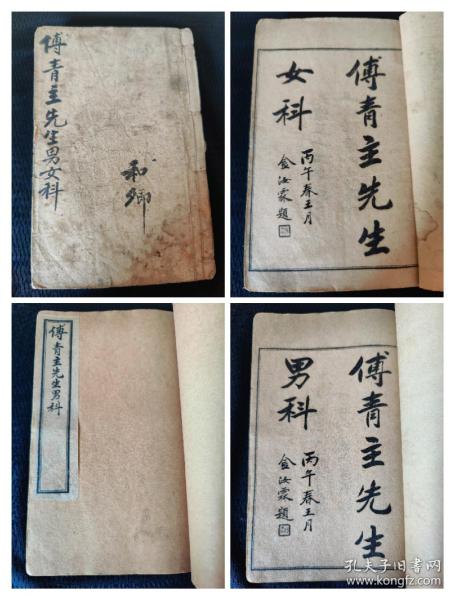 傅青主先生男女科
和卿
傅青主先生
女科
丙午春王月
金汝霖題
傅青主先生男科
傅青主先生
男科
丙午春王月
金汝霖題
孔夫子旧书网
www.kongfz.com